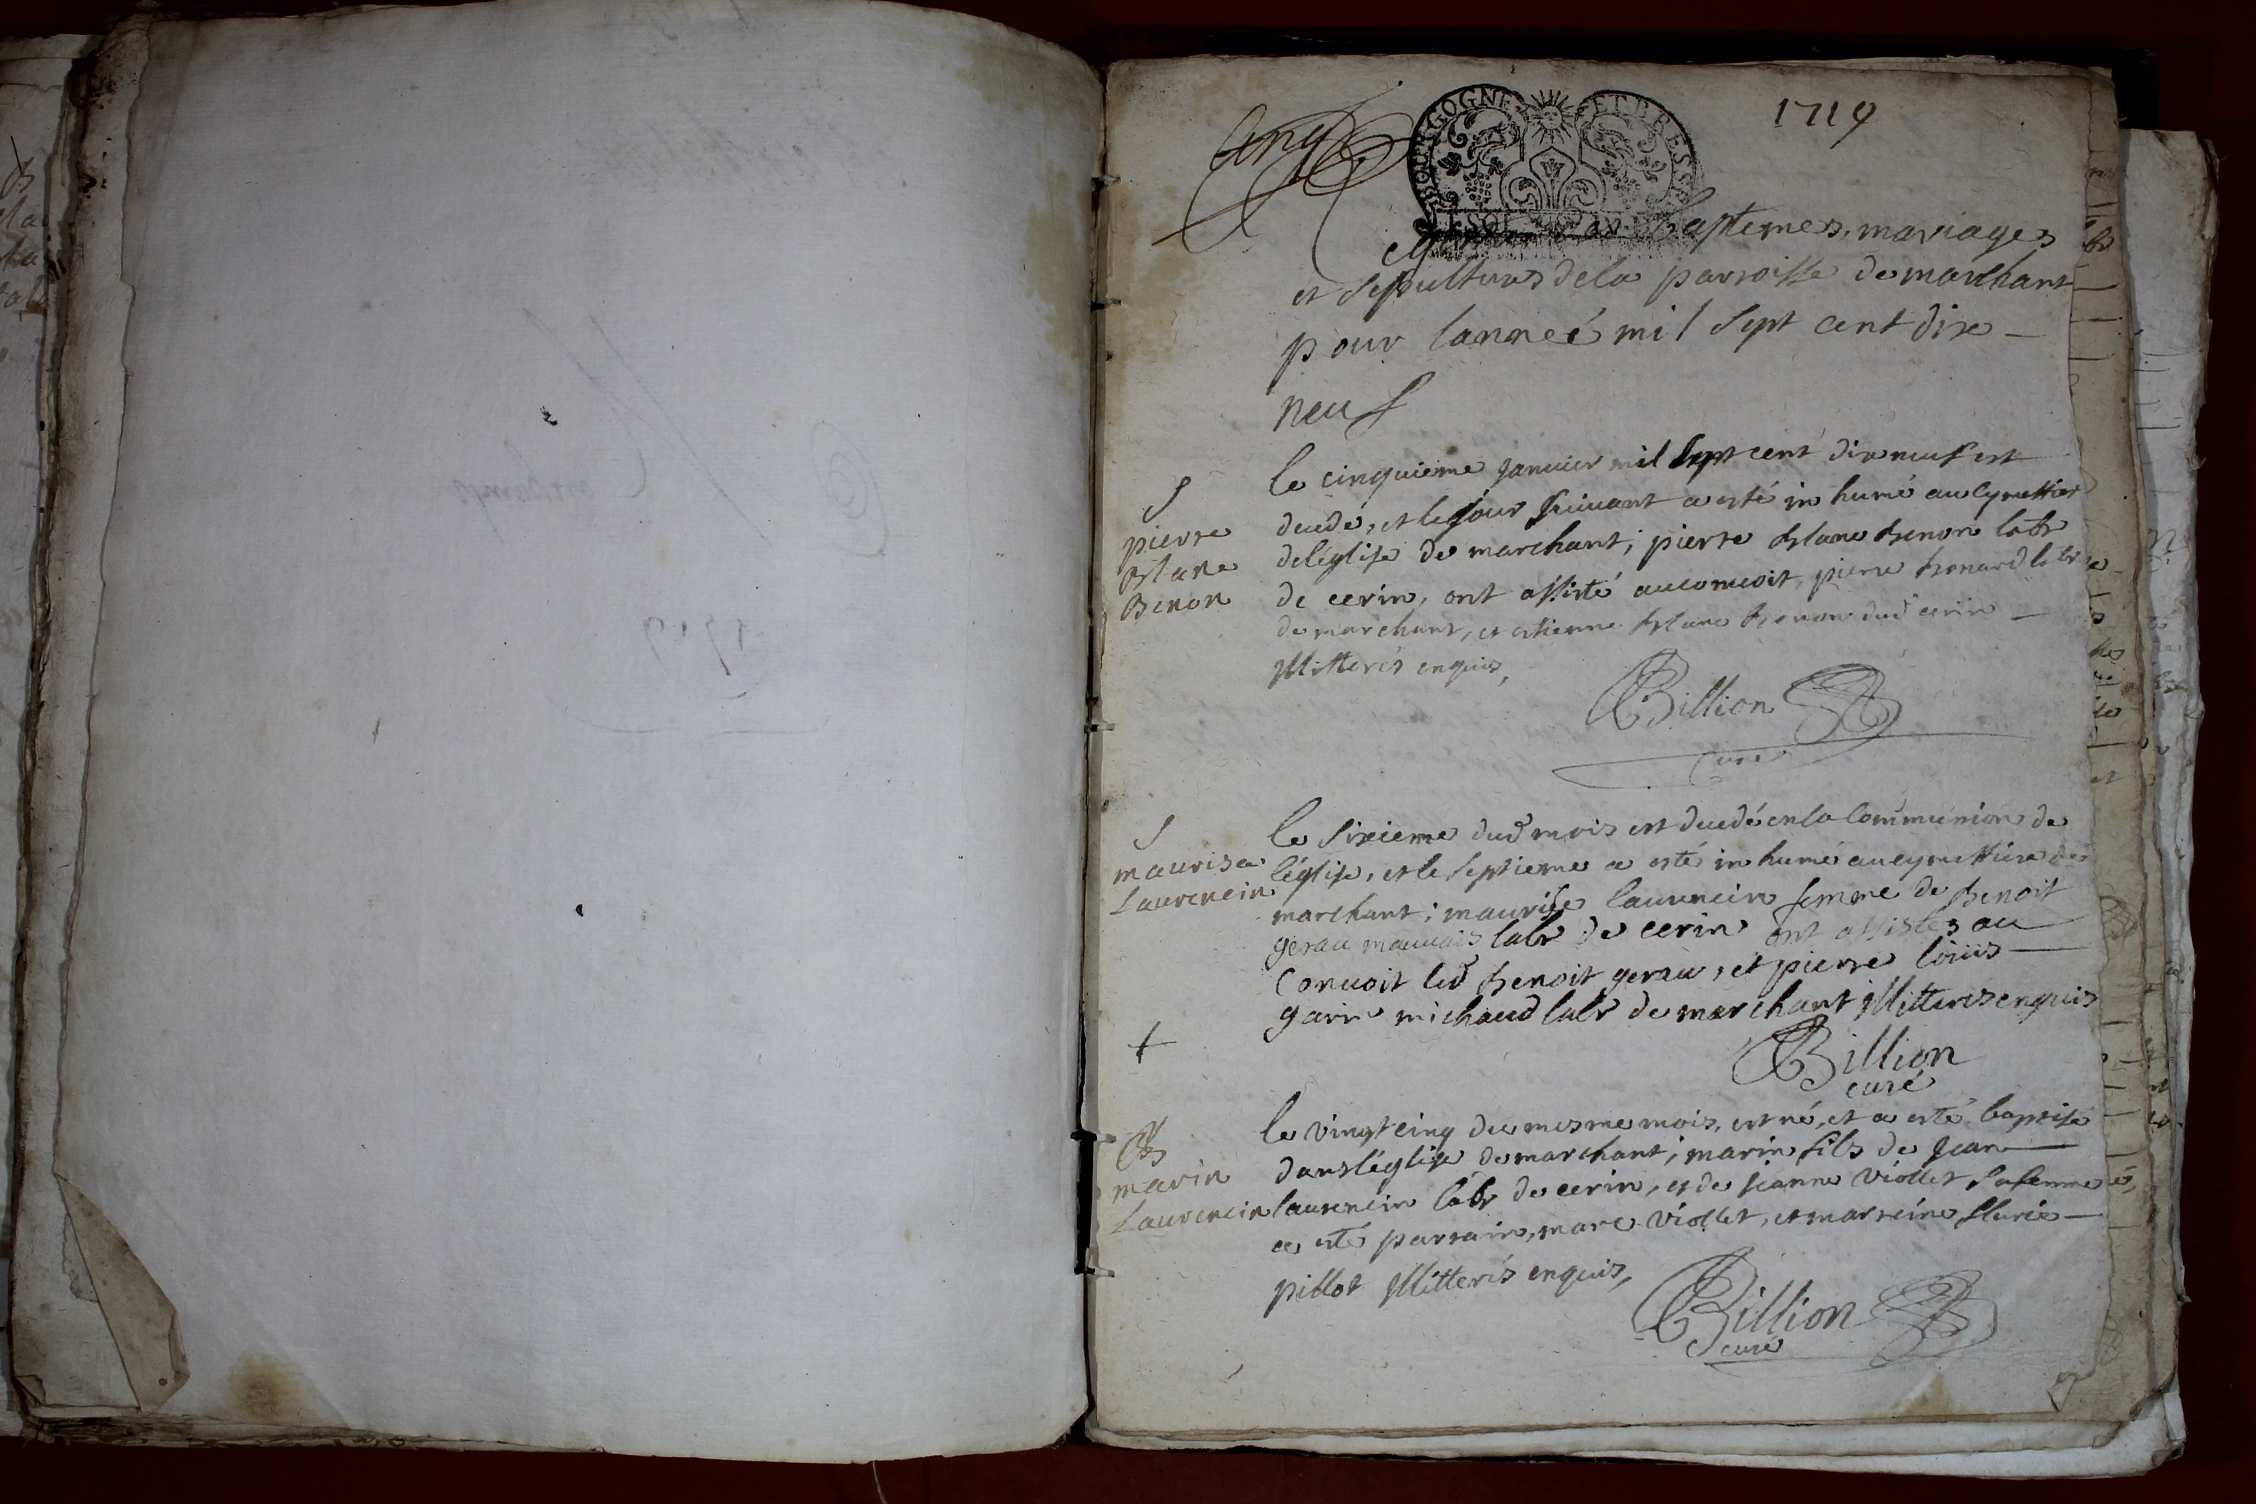 1719
BOURGOGNE ET BRESSE
baptemes, mariages
et sepultures dela parroisse de marchant
pour lanneé mil sept cent dix –
neuf
S
pierre
blanc
Benon
le cinquieme janvier mil sept cent dix neuf est
decedé, et le jour suivant a esté in humé au cymettier
deléglise de marchant; pierre blanc benon labr
de cerin, ont assisté au convoit, pierre bonard labr
de marchant, et estienne blanc benon dud cerin –
illitterés enquis,
Billion
curé
S
maurise
Laurencin
le sixieme dud mois est decedé en la communion de
léglise, et le septieme a esté in humé au cymettiere de
marchant; maurise laurencin femme de benoit
gerau mauvais labr de cerin ont assistés au
convoit led benoit gerau, et pierre louis –
garin michaud labr de marchant illitterés enquis
Billion
curé
+
B
marin
Laurencin
le vingt cinq du mesme mois, est né, et a esté baptisé
dans léglise de marchant; marin fils de jean –
laurencin labr de cerin, et de jeanne viollet sa femme
a esté parrain, marc viollet, et marreine clurie –
pillot illitterés enquis,
Billion
curé